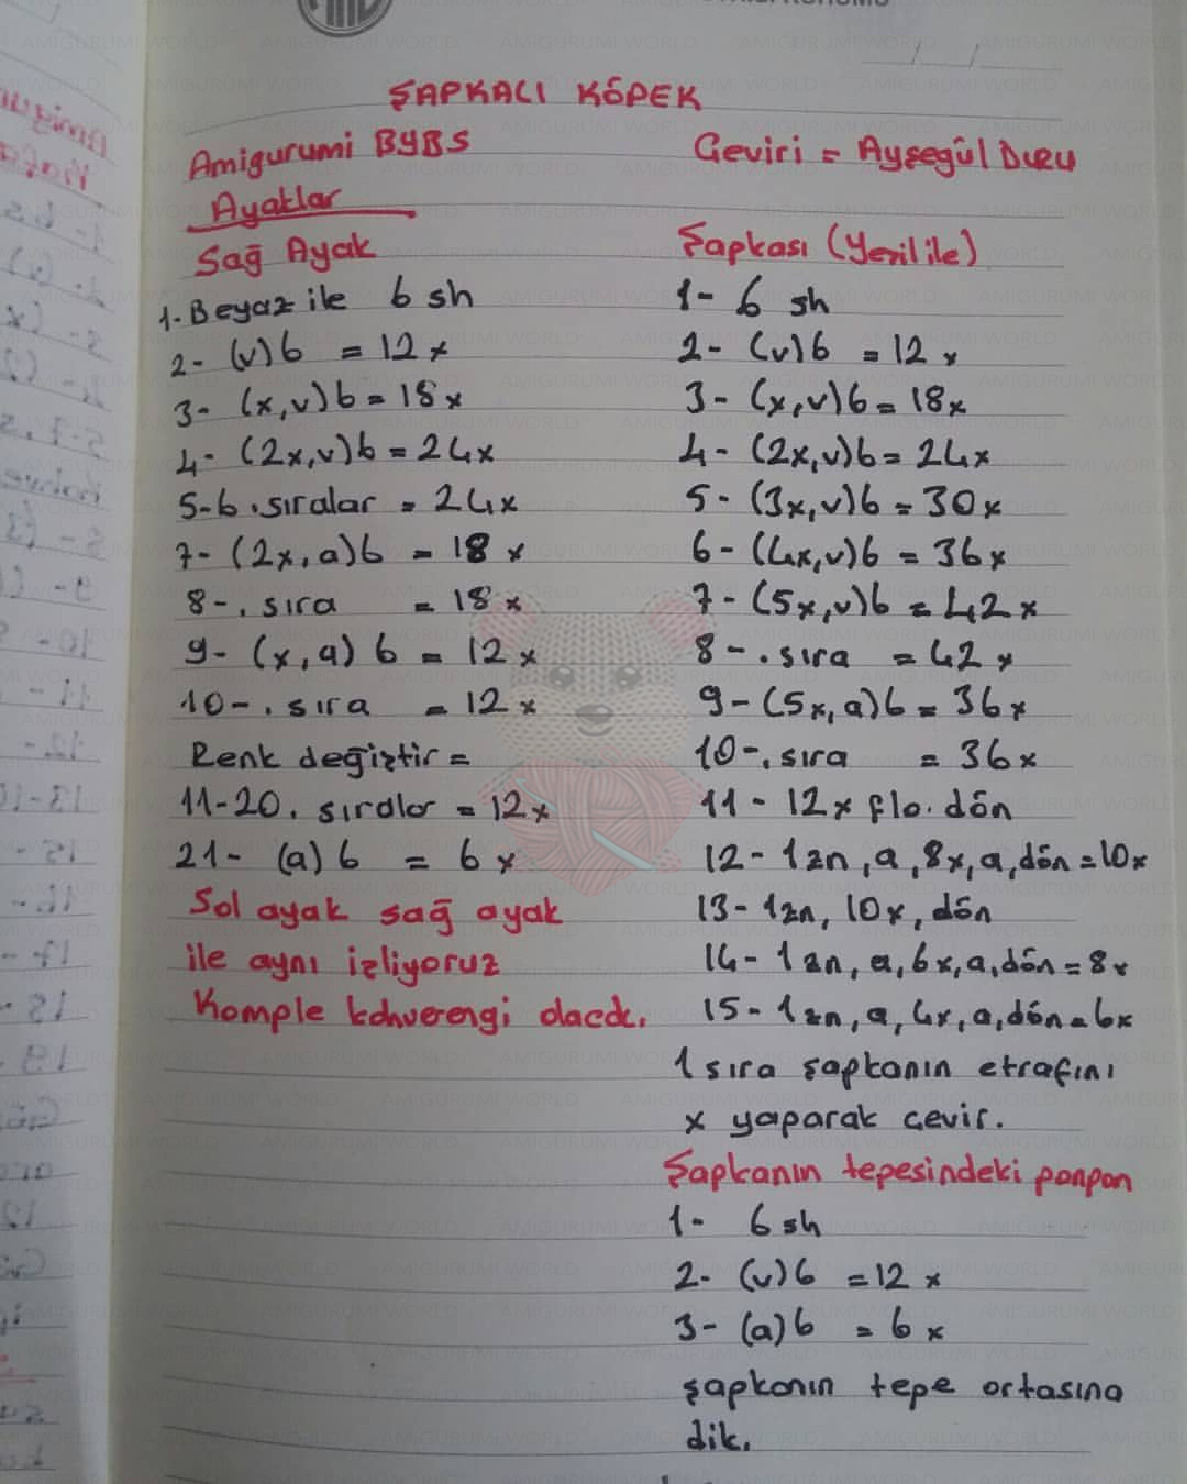 ŞAPKALI KÖPEK
Amigurumi BYBS
Çeviri = Ayşegül Duru
Ayaklar
Sağ Ayak
1. Beyaz ile 6 sh
2- (v)6 = 12x
3- (x,v)6 = 18x
4- (2x,v)6 = 24x
5-6. sıralar = 24x
7- (2x,a)6 = 18x
8-. sıra = 18x
9- (x,a)6 = 12x
10-. sıra = 12x
Renk değiştir =
11-20. sıralar = 12x
21- (a)6 = 6x
Sol ayak sağ ayak
ile aynı işliyoruz
Komple kahverengi olacak.
Şapkası (Yeşil ile)
1- 6 sh
2- (v)6 = 12x
3- (x,v)6 = 18x
4- (2x,v)6 = 24x
5- (3x,v)6 = 30x
6- (4x,v)6 = 36x
7- (5x,v)6 = 42x
8-. sıra = 42x
9- (5x,a)6 = 36x
10-. sıra = 36x
11- 12x flo. dön
12- 1zn, a, 8x, a, dön = 10x
13- 1zn, 10x, dön
14- 1zn, a, 6x, a, dön = 8x
15- 1zn, a, 4x, a, dön = 6x
1 sıra şapkanın etrafını
x yaparak çevir.
Şapkanın tepesindeki ponpon
1- 6 sh
2- (v)6 = 12x
3- (a)6 = 6x
şapkanın tepe ortasına
dik.
AMIGURUMI WORLD